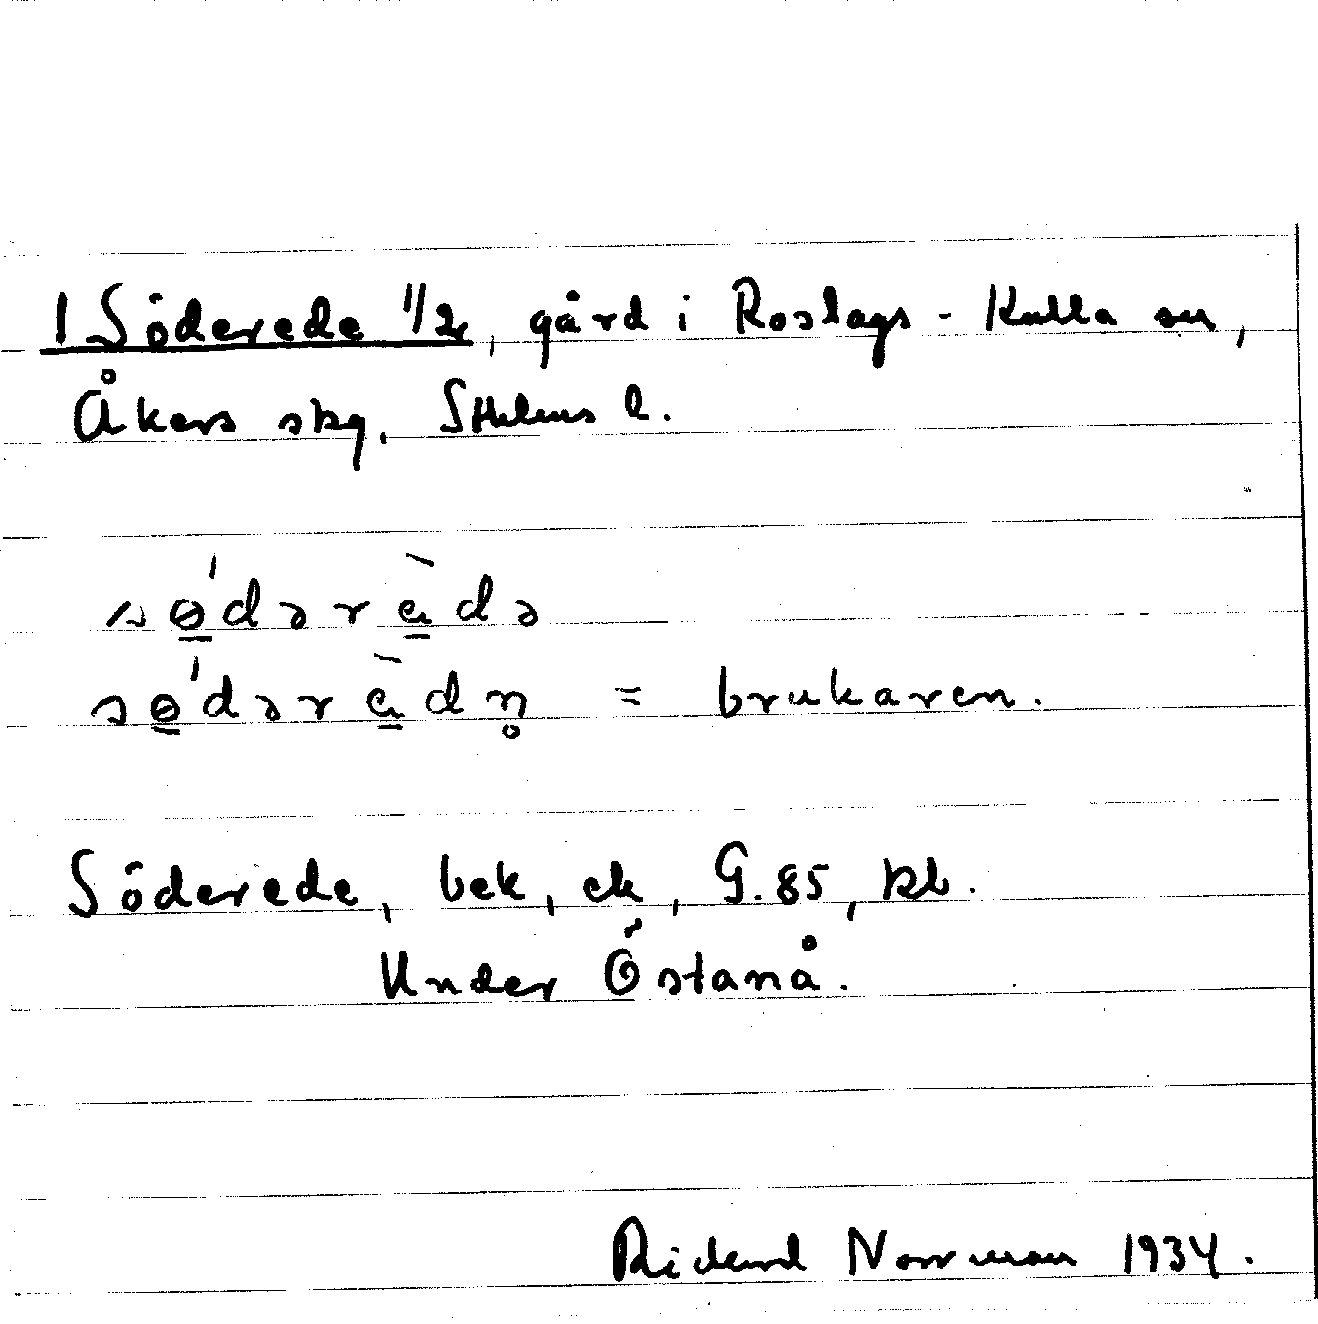 1 Söderede 1/2, gård i Roslags-Kulla sn,
Åkers skg, Sthlms l.
sø̱´dərè̱də
sø̱´dərè̱dn̥ = brukaren.
Söderede, bek, ek, G.85, kb.
Under Östanå.
Rickard Norrman 1934.